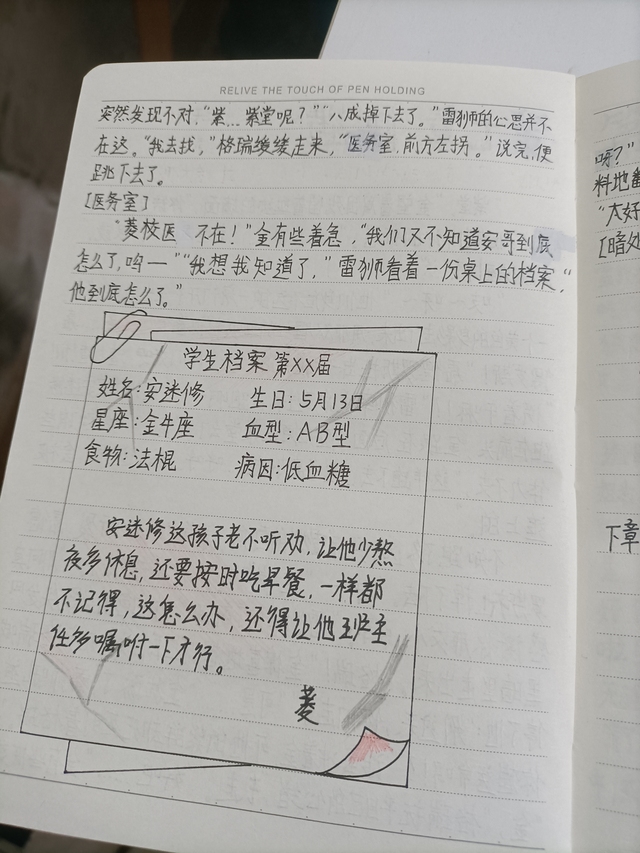 RELIVE THE TOUCH OF PEN HOLDING
突然发现不对，“紫…紫堂呢？”“八成掉下去了。”雷狮的心思并不
在这。“我去找，”格瑞缓缓走来，“医务室，前方左拐。”说完，便
跳下去了。
[医务室]
“菱校医 不在！”金有些着急，“我们又不知道安哥到底
怎么了，呜一”“我想我知道了，”雷狮看着一份桌上的档案，“
他到底怎么了。”
学生档案 第XX届
姓名：安迷修 生日：5月13日
星座：金牛座 血型：AB型
食物：法棍 病因：低血糖
安迷修这孩子老不听劝，让他少熬
夜多休息，还要按时吃早餐，一样都
不记得，这怎么办，还得让他班主
任多嘱咐一下才行。
菱
呀？”
料地
“大好
[暗处
下章